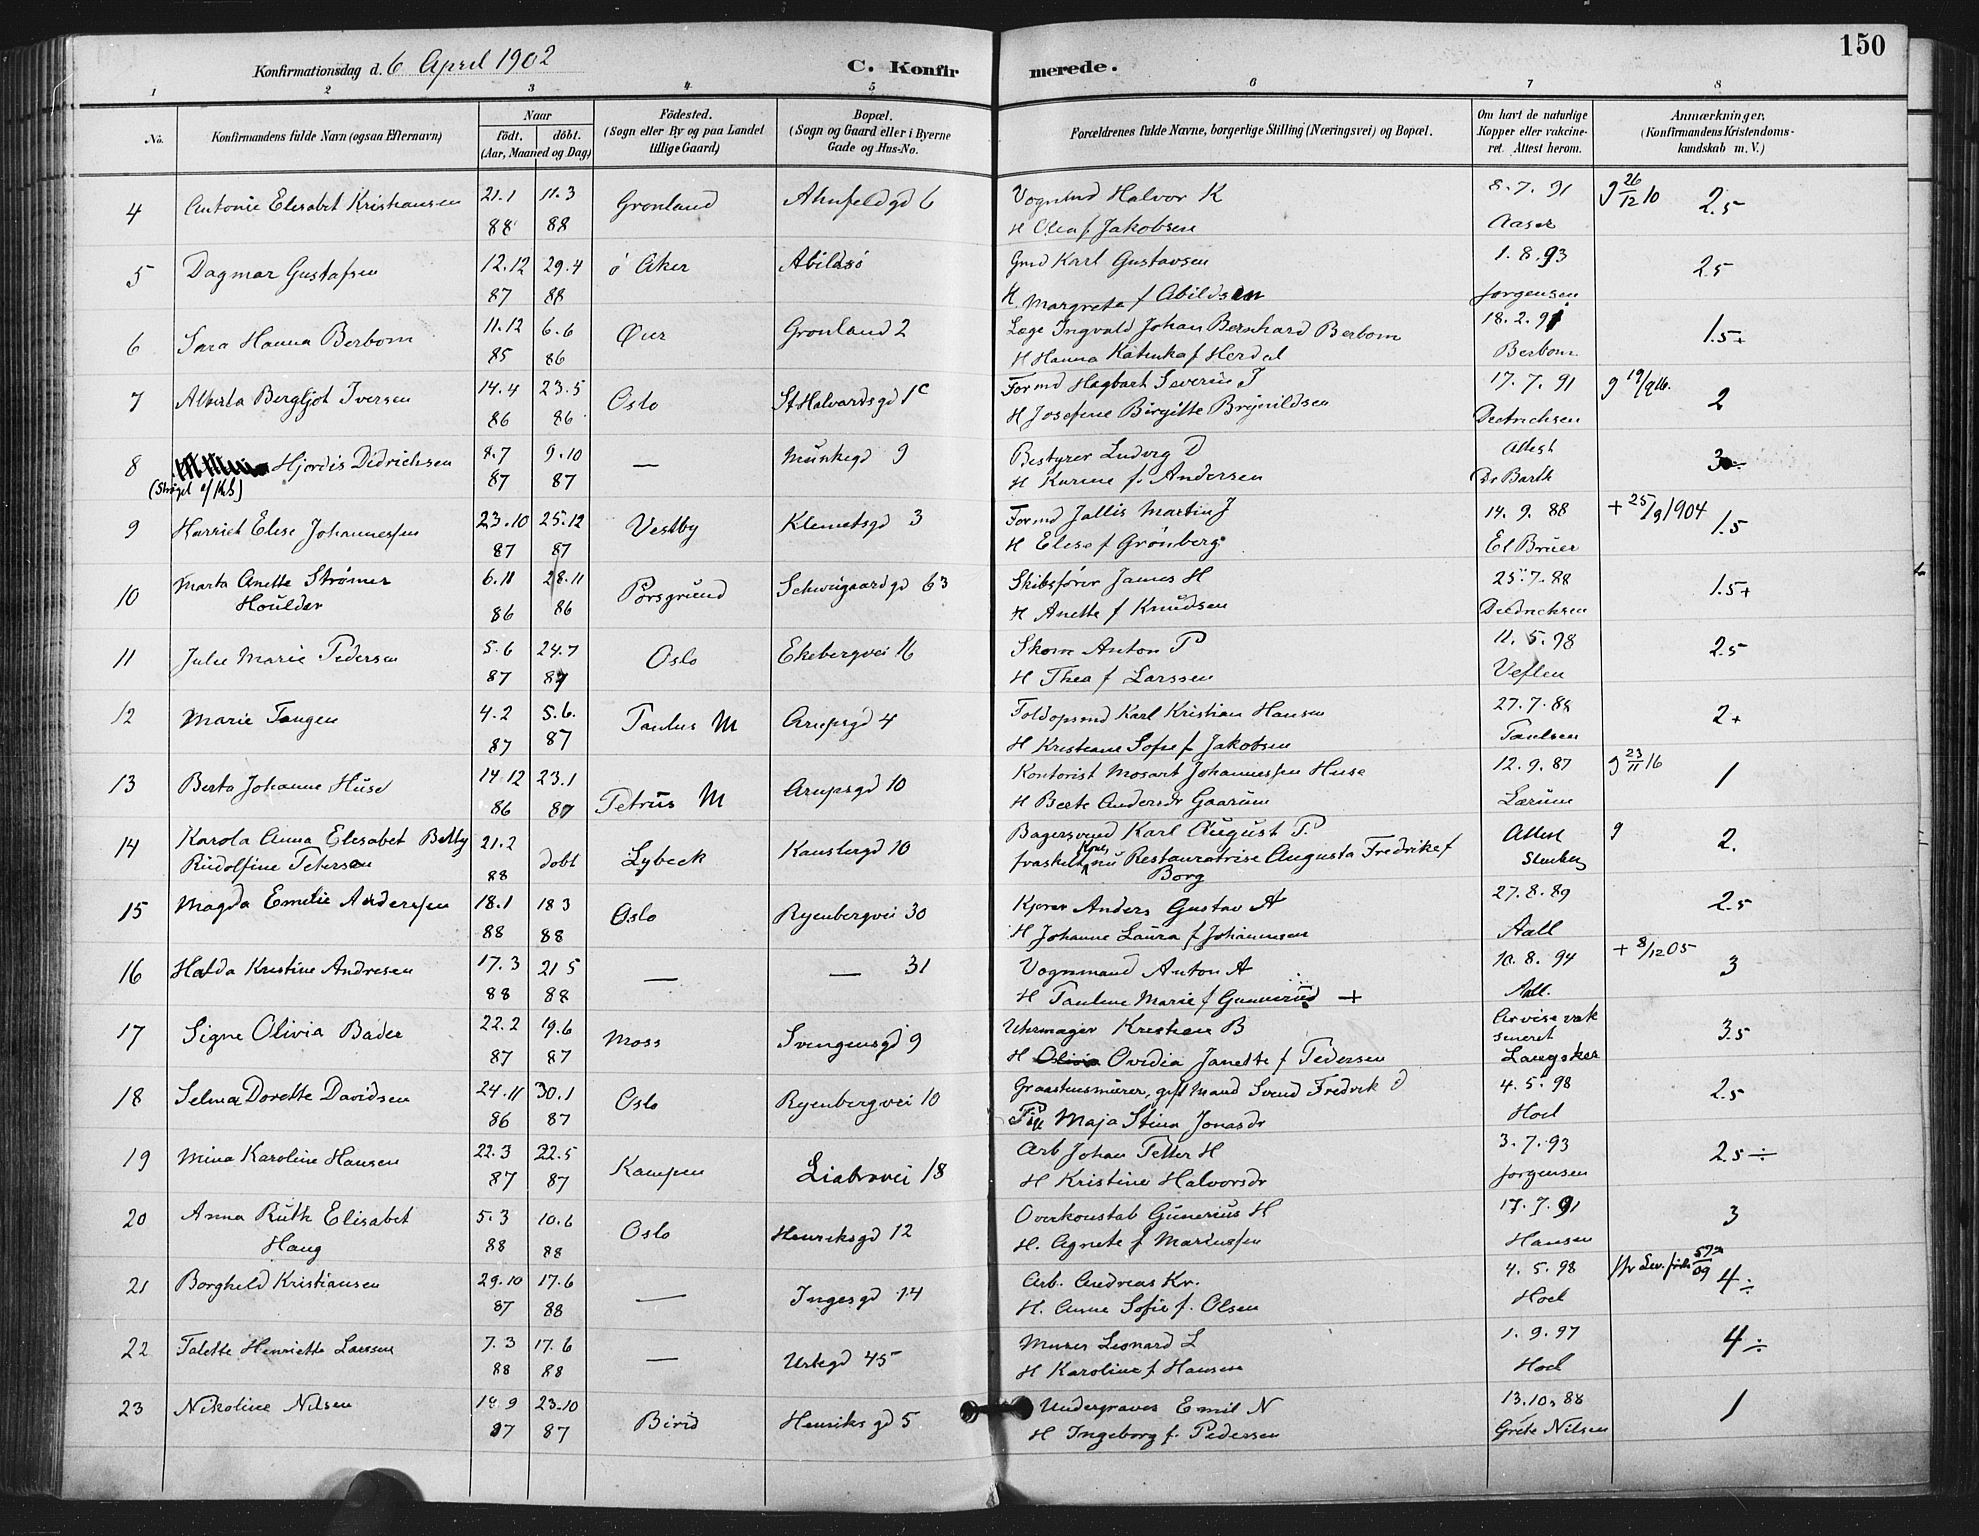 150
Konfirmationsdag d. 6 April 1902
C. Konfirmerede.
1 2 3 4 5 6 7 8
No. Konfirmandens fulde Navn (ogsaa Efternavn) Naar født. døbt. (Aar, Maaned og Dag) Födested. (Sogn eller By og paa Landet tillige Gaard) Bopæl. (Sogn og Gaard eller i Byerne Gade og Hus-No. Forældrenes fulde Navne, borgerlige Stilling (Næringsvei) og Bopæl. Om havt de naturlige Kopper eller vakcineret. Attest herom. Anmærkninger, (Konfirmandens Kristendomskundskab m. V.)
4 Antonie Elisabet Kristiansen 21.1 11.3 Grønland Ahnfeldgd 6 Vognmd Halvor K 8.7.91 g 26/12 10 2.5
88 88 H Olea f Jakobsen Aaser
5 Dagmar Gustafsen 12.12 29.4 ø Aker Abildsø Gmd Karl Gustavsen 1.8.93 2.5
87 88 H. Margrete f Abildsen Jørgensen
6 Sara Hanna Berbom 11.12 6.6 Grønland 2 Læge Ingvald Johan Bernhard Berbom 18.2.91 1.5+
85 86 H Hanna Katinka f Herdal Berbom
7 Alberta Bergljot Iversen 14.4 23.5 Oslo St Halvardsgd 1c Formd Hagbart Severin I 17.7.91 g 19/9 16. 2
86 86 H Josefine Birgitte Brynildsen Diedrichsen
8 Hjordis Didrichsen 8.7 9.10 — Munkegd 9 Bestyrer Ludvig D Attest 3÷
87 87 H Karine f. Andersen Dr Barth
9 Harriet Elise Johannessen 23.10 25.12 Vestby Klemetsgd 3 Formd Jallis Martin J 14.9.88 + 25/9 1904 1.5
87 87 H Elise f Grønberg El Bruer
10 Marta Anette Strømer 6.11 28.11 Porsgrund Schweigaardgd 63 Skibsfører James H 25.7.88 1.5+
Houlder 86 86 H Anette f Knudsen Diedrichsen
11 Julie Marie Pedersen 5.6 24.7 Oslo Ekebergvei 16 Skom Anton P 11.5.98 2.5
87 87 H Thea f Larssen Veflen
12 Marie Tangen 4.2 5.6. Paulus M Arupsgd 4 Toldopsmd Karl Kristian Hansen 27.7.88 2+
87 87 H Kristiane Sofie f Jakobsen Paulsen
13 Berta Johanne Huse 14.12 23.1 Petrus M Arupsgd 10 Kontorist Mosart Johannessen Huse 12.9.87 g 23/11 16 1
86 87 H Berte Andersdr Gaarum Larum
14 Karola Anna Elisabet Betty 21.2 døbt Lybeck Kanslergd 10 Bagersvend Karl August P. Attest g 2.
Rudolfine Petersen 88 fraskilt Kone, nu Restauratrise Augusta Fredrike f
Borg
15 Magda Emilie Anderssen 18.1 18 3 Oslo Ryenbergvei 30 Kjører Anders Gustav A 27.8.89 2.5
88 88 H Johanne Laura f Johannsen Aall
16 Halda Kristine Andresen 17.3 21 5 — — 31 Vognmand Anton A 10.8.94 + 8/12 05 3
88 88 H Pauline Marie f Gunnerud + Aall.
17 Signe Olivia Bader 22.2 19.6 Moss Svengensgd 9 Uhrmager Kristian B 3.5
87 87 H Ovidia Janette f Pedersen
18 Selma Dorette Davidsen 24.11 30.1 Oslo Ryenbergvei 10 Graastensmurer, gift Mand Svend Fredrik D 4.5.98 2.5
86 87 Pig Maja Stina Jonasdr Hoel
19 Mina Karoline Hansen 22.3 22.5 Kampen Liabrovei 18 Arb Johan Petter H 3.7.93 2.5÷
87 87 H Kristine Halvorsdr Jorgensen
20 Anna Ruth Elisabet 5.3 10.6 Oslo Henriksgd 12 Overkonstab Gunerius H 17.7.91 3
Haug 88 88 H. Agnete f Mariussen Hansen
21 Borghild Kristiansen 29.10 17.6 — Ingesgd 14 Arb. Andreas Kr. 4.5.98 4÷
87 88 H. Anne Sofie f. Olsen Hoel
22 Talette Henriette Larssen 7.3 17.6 — Urtegd 45 Murer Leonard L 1.9.97 4÷
88 88 H Karoline f Hansen Hoel
23 Nikoline Nilsen 18.9 23.10 Birid Henriks gd 5 Undergraver Emil N 13.10.88 1
87 87 H Ingeborg f. Pedersen Grete Nilsen